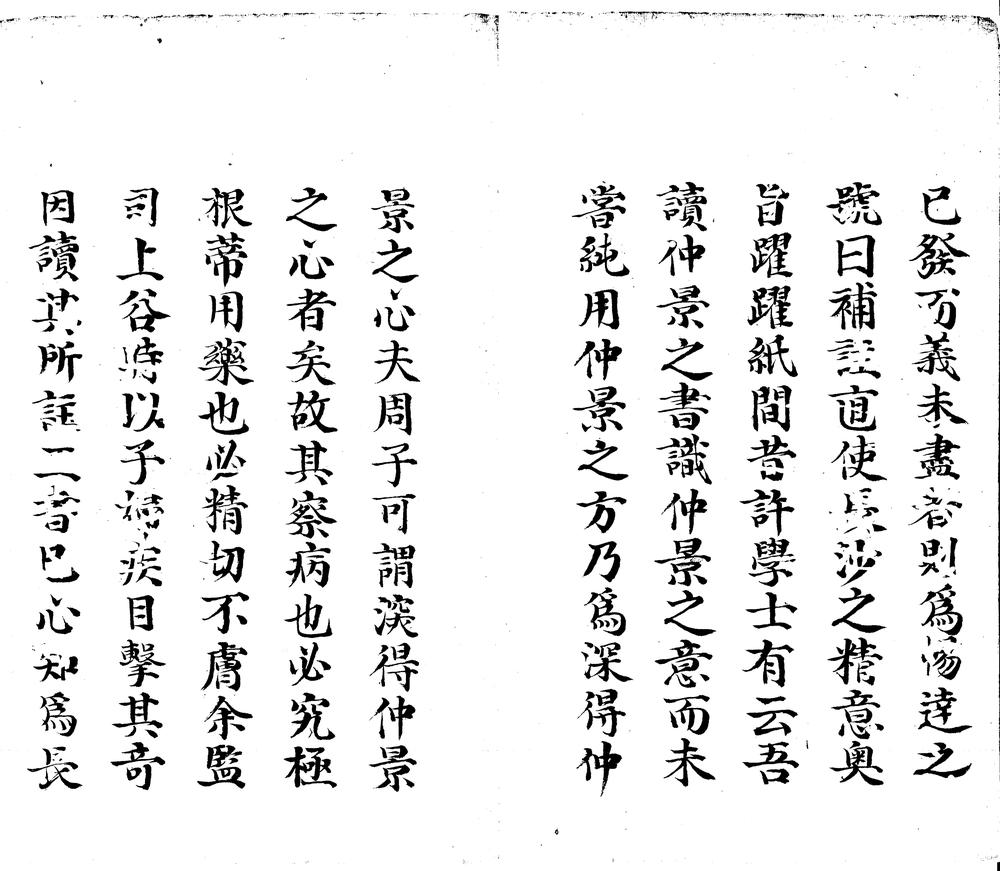 已發而義未盡者則爲暢達之
號曰補註直使長沙之精意奧
旨躍躍紙間昔許學士有云吾
讀仲景之書識仲景之意而未
嘗純用仲景之方乃爲深得仲
景之心夫周子可謂深得仲景
之心者矣故其察病也必究極
根蒂用藥也必精切不膚余監
司上谷時以子構疾目擊其奇
因讀其所註二書已心知爲長